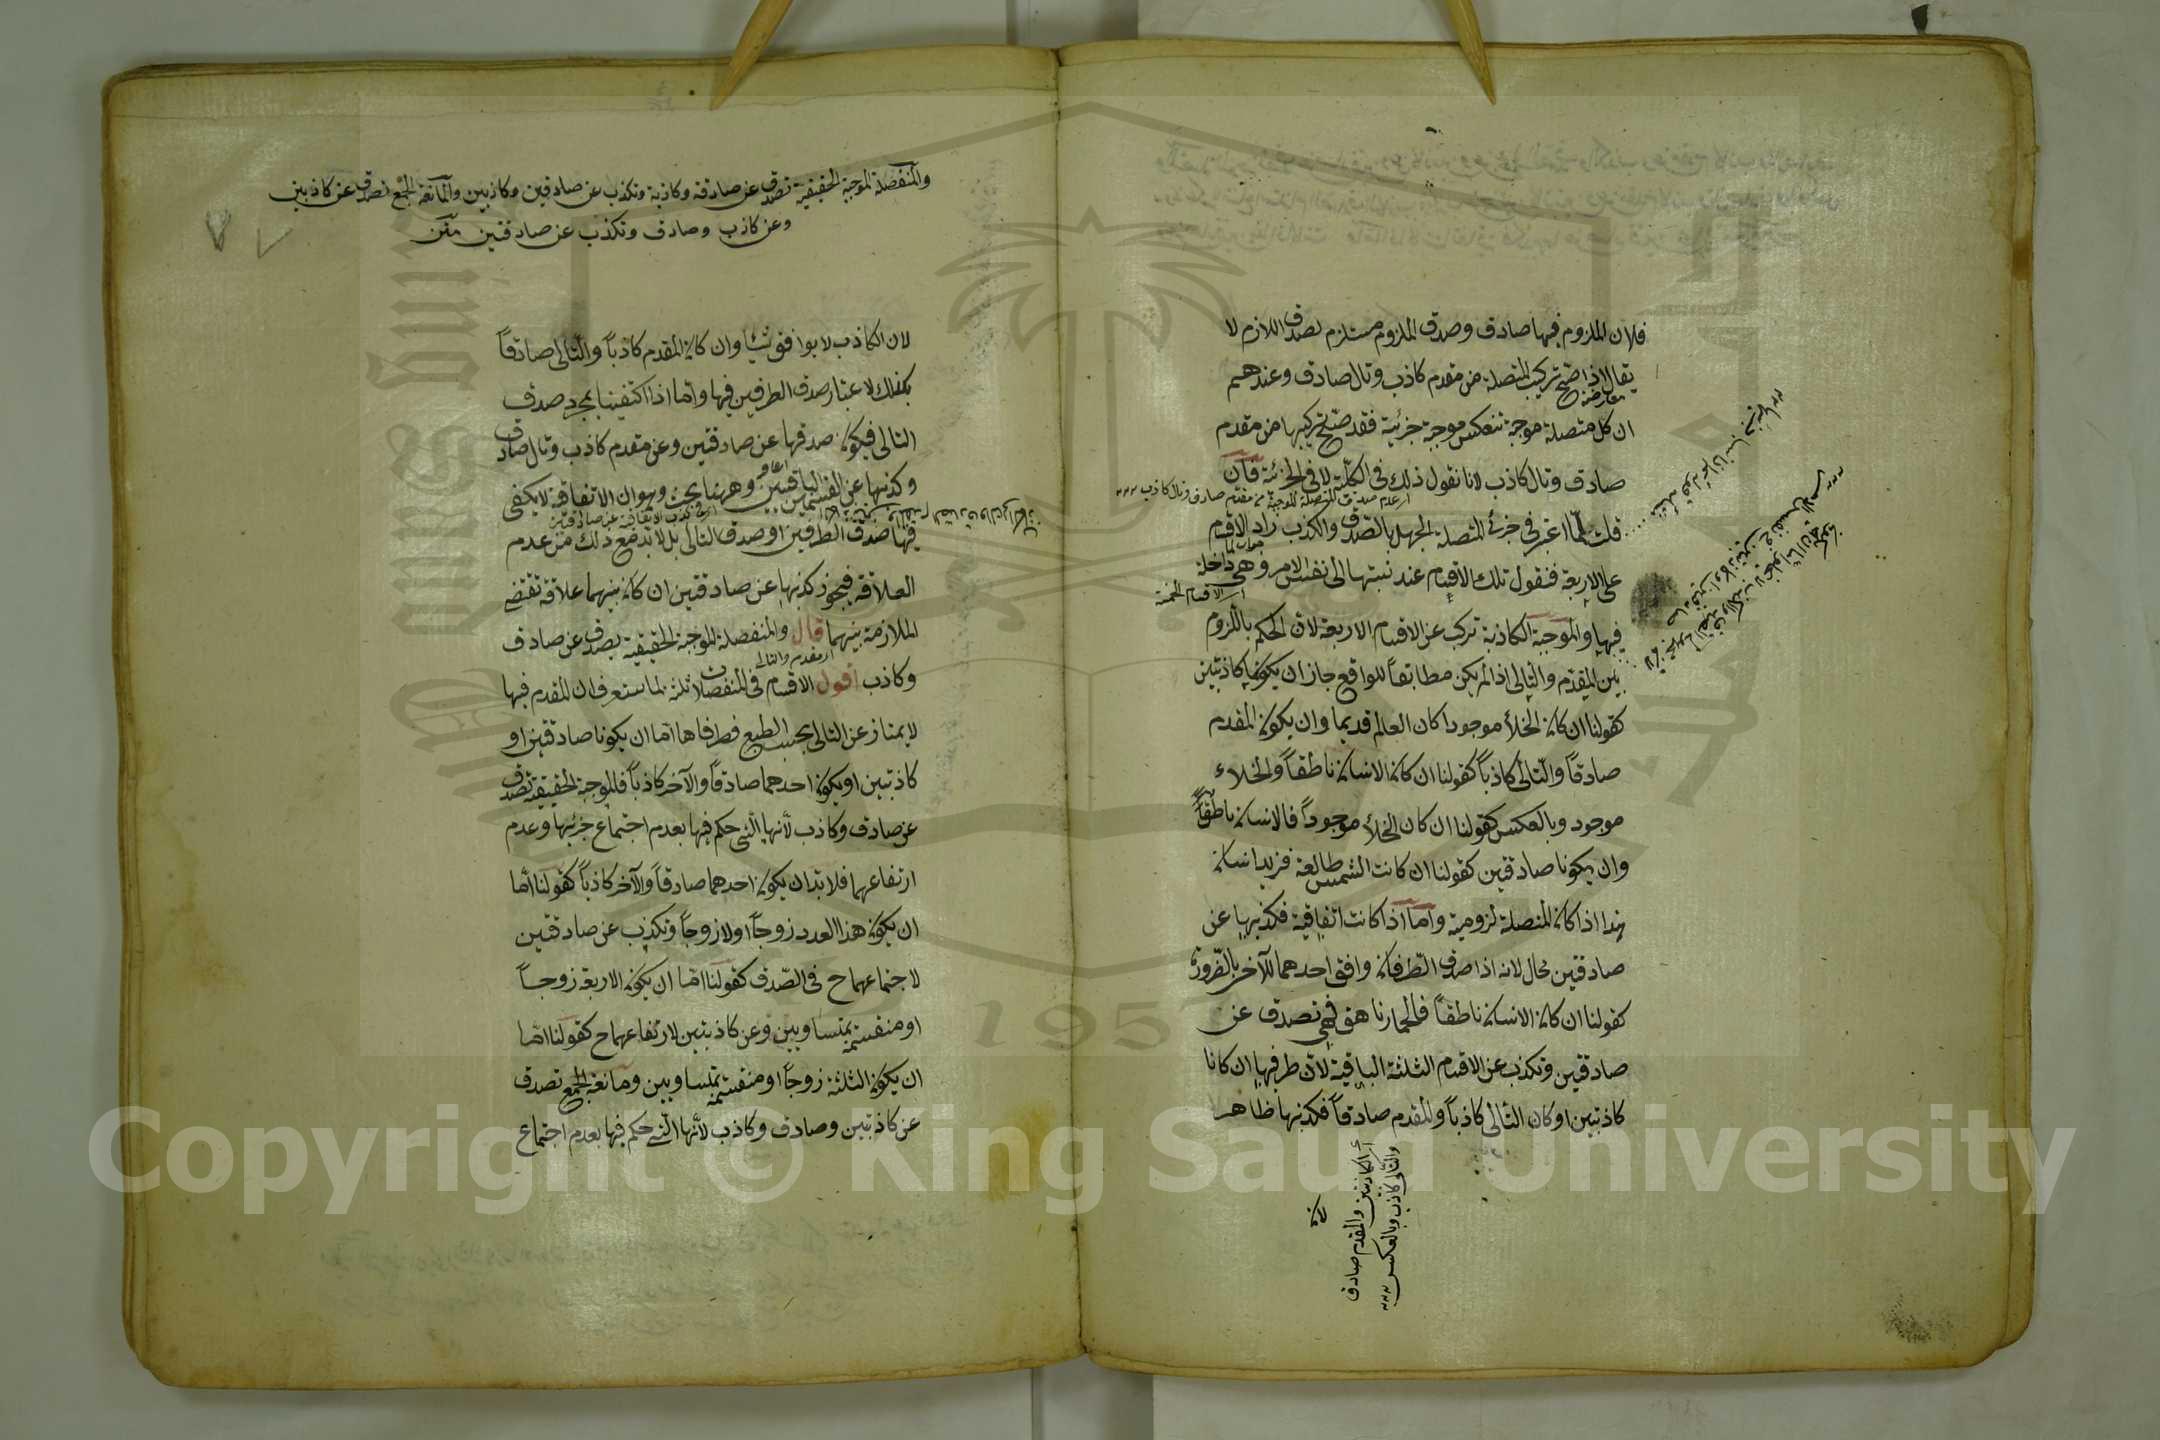 فلان الملزوم فيها صادق وصدق الملزوم مستلزم لصدق اللازم لا
يقال اذا صح تركيب المتصلة من مقدم كاذب وتال صادق وعندهم
معارضة
ان كل متصلة موجبة تنعكس موجبة جزئية فقد صح تركيبها من مقدم
صادق وتال كاذب لانا نقول ذلك فى الكلية لا فى الجزئية فان
اى عدم صدق المتصلة الموجبة من مقدم صادق وتال كاذب
قلت لما اعتبر فى جزئى المتصلة الجهل بالصدق والكذب زاد الاقسام
جواب لما
على الاربعة فنقول تلك الاقسام عند نسبتها الى نفس الامر وهى داخلة
اى الاقسام الخمسة
فيها والموجبة الكاذبة تركب عن الاقسام الاربعة لان الحكم باللزوم
بين المقدم والتالى اذا لم يكن مطابقاً للواقع جاز ان يكونا كاذبتين
كقولنا ان كان الخلأ موجودا كان العالم قديما وان يكون المقدم
صادقاً والتالى كاذباً كقولنا ان كان الانسان ناطقاً والخلاء
موجود وبالعكس كقولنا ان كان الخلأ موجوداً فالانسان ناطقاً
وان يكونا صادقين كقولنا ان كانت الشمس طالعة فزيد انسان
هذا اذا كان المتصلة لزومية واما اذا كانت اتفاقية فكذبها عن
صادقين محال لانه اذا صدق الطرفان وافق احدهما للآخر بالضرورة
كقولنا ان كان الانسان ناطقاً فالحمار ناهق فهى تصدق عن
صادقين وتكذب عن الاقسام الثلثة الباقية لان طرفيها ان كانا
كاذبتين او كان التالى كاذباً والمقدم صادقاً فكذبها ظاهر
اى الكاذبتين والمقدم صادق
والتالى كاذب وبالعكس
والمنفصلة الموجبة الحقيقية تصدق عن صادقة وكاذبة وتكذب عن صادقين وكاذبين والمانعة الجمع تصدق عن كاذبين
وعن كاذب وصادق وتكذب عن صادقتين متن
لان الكاذب لا يوافق شيئا وان كان المقدم كاذباً والتالى صادقاً
بكذلك لاعتبار صدق الطرفين فيها واما اذا اكتفينا بمجرد صدق
التالى فيكون صدقها عن صادقتين وعن مقدم كاذب وتال صادق
وكذبها عن القسمين الباقيين وههنا بحث وهو ان الاتفاقية لا يكفى
فيها صدق الطرفين او صدق التالى بل لا بد مع ذلك من عدم
العلاقة فيجوز كذبها عن صادقتين ان كان بينهما علاقة تقتضى
الملازمة بينهما قال والمنفصلة الموجبة الحقيقية يصدق عن صادق
اى مقدم والتالى
وكاذب اقول الاقسام فى المنفصلات ثلثة لما ستعرف ان المقدم فيها
لا يمتاز عن التالى بحسب الطبع فطرفاها اما ان يكونا صادقتين او
كاذبتين او يكون احدهما صادقاً والآخر كاذباً فالموجبة الحقيقية تصدق
عن صادق وكاذب لأنها التى حكم فيها بعدم اجتماع جزئيها وعدم
ارتفاعهما فلا بد ان يكون احدهما صادقاً والآخر كاذباً كقولنا اما
ان يكون هذا العدد زوجاً او لا زوجاً وتكذب عن صادقتين
لاجتماعهما ح فى الصدق كقولنا اما ان يكون الاربعة زوجاً
او منقسمة بمتساويين وعن كاذبتين لارتفاعهما ح كقولنا اما
ان يكون الثلثة زوجاً او منقسمة بمتساويين ومانعة الجمع تصدق
عن كاذبتين وصادق وكاذب لأنها التى حكم فيها بعدم اجتماع
1957
Copyright © King Saud University